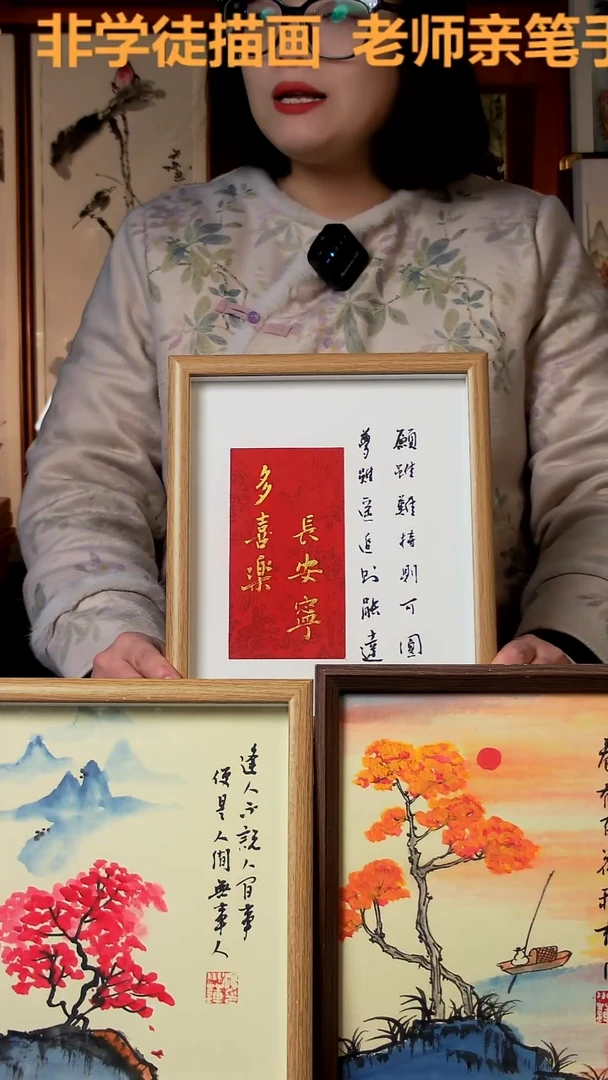 非学徒描画 老师亲笔手
願雖難持則可圓
夢雖遥追則能達
長安寧
多喜樂
逢人不說人間事
便是人間無事人